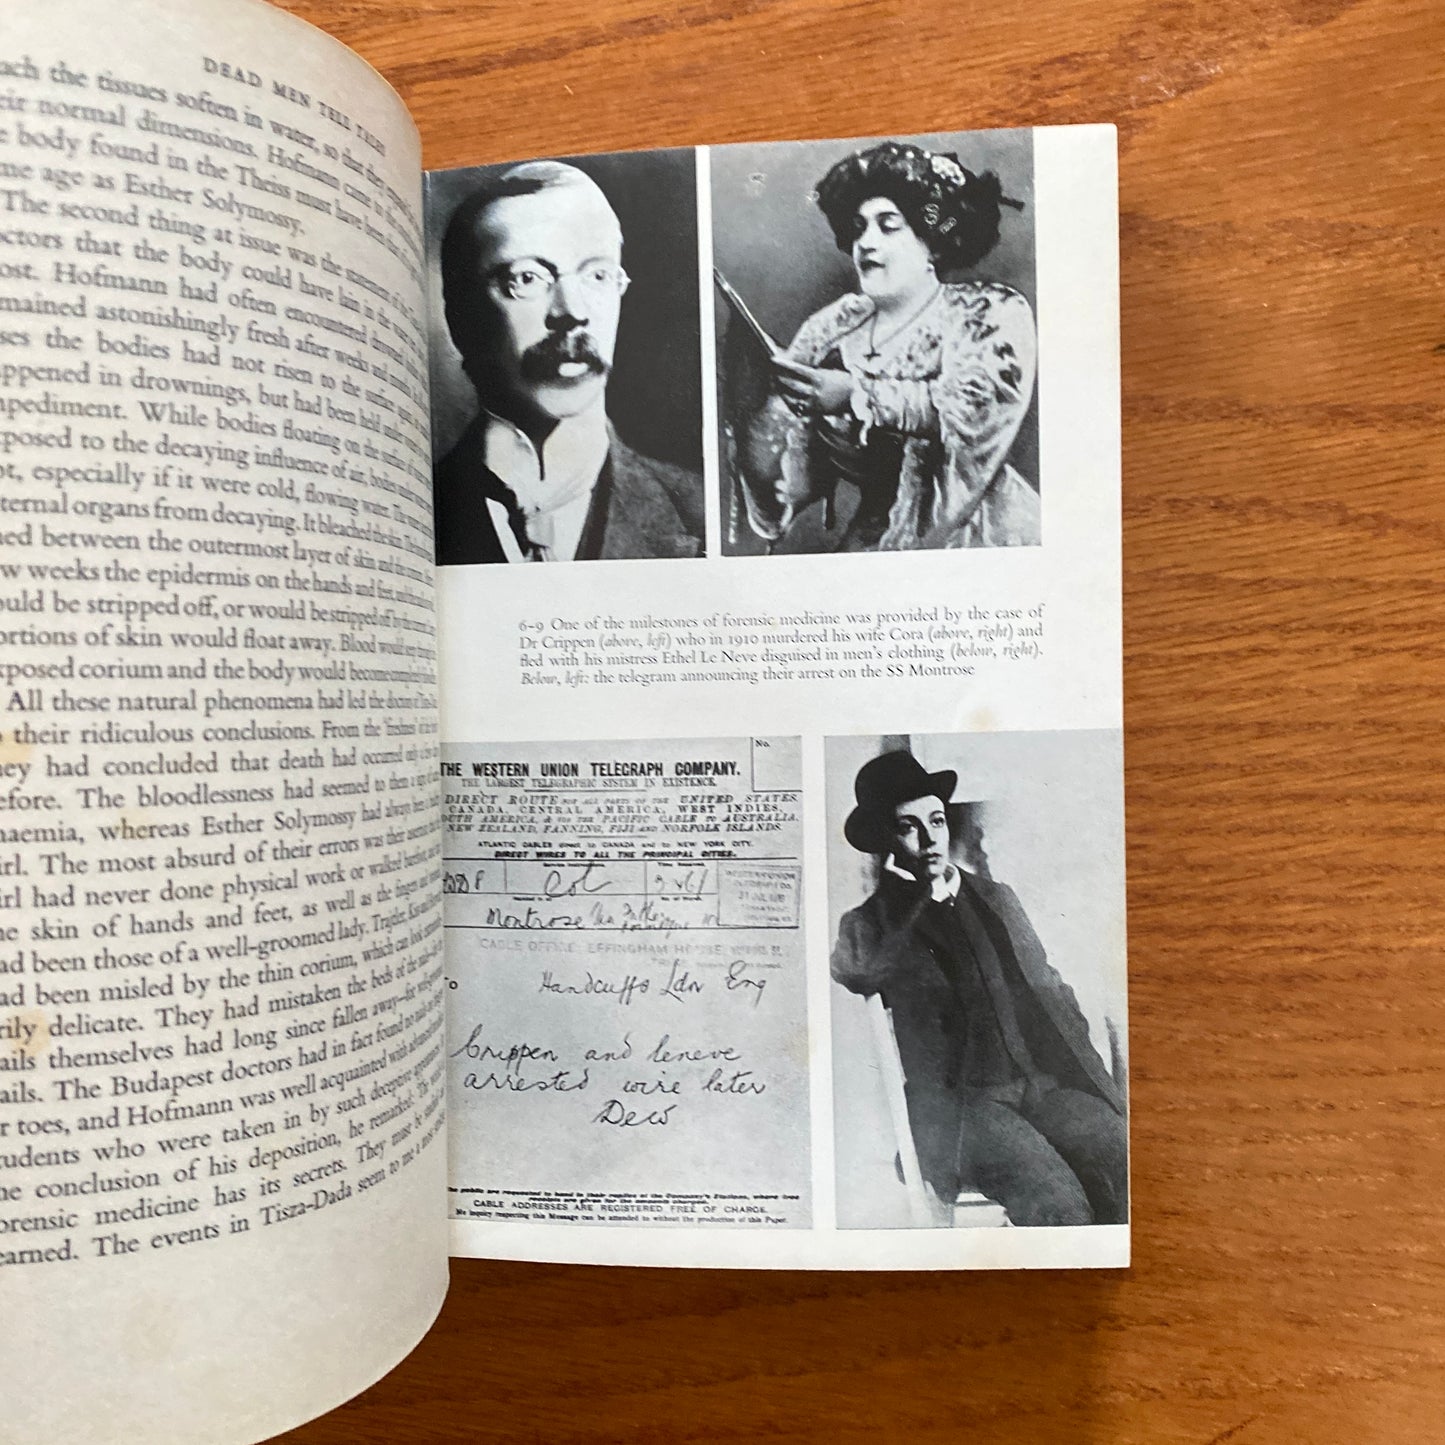 DEAD MEN TELL TALES
ach the tissues soften in water, so that they
eir normal dimensions. Hofmann came to the
e body found in the Theiss must have been that
me age as Esther Solymossy.
The second thing at issue was the statement of the
octors that the body could have lain in the water
ost. Hofmann had often encountered drowned
mained astonishingly fresh after weeks and months.
ses the bodies had not risen to the surface again,
ppened in drownings, but had been held under
npediment. While bodies floating on the surface of
xposed to the decaying influence of air, bodies under
ot, especially if it were cold, flowing water. The
ternal organs from decaying. It bleached the skin. The
ned between the outermost layer of skin and the
w weeks the epidermis on the hands and feet,
ould be stripped off, or would be stripped off by the
ortions of skin would float away. Blood would seep through the
xposed corium and the body would become completely
All these natural phenomena had led the doctors of
o their ridiculous conclusions. From the 'freshness' of the
hey had concluded that death had occurred only a
efore. The bloodlessness had seemed to them a sign of
naemia, whereas Esther Solymossy had always been a
irl. The most absurd of their errors was their
irl had never done physical work or walked barefoot,
he skin of hands and feet, as well as the fingers and
ad been those of a well-groomed lady. Trajtler, Kiss and
ad been misled by the thin corium, which can look
rily delicate. They had mistaken the beds of the nails for the
ails themselves had long since fallen away—for
ails. The Budapest doctors had in fact found no nails on fingers
r toes, and Hofmann was well acquainted with
tudents who were taken in by such deceptive appearances.
he conclusion of his deposition, he remarked: 'The
orensic medicine has its secrets. They must be
earned. The events in Tisza-Dada seem to me a most
6–9 One of the milestones of forensic medicine was provided by the case of
Dr Crippen (above, left) who in 1910 murdered his wife Cora (above, right) and
fled with his mistress Ethel Le Neve disguised in men's clothing (below, right).
Below, left: the telegram announcing their arrest on the SS Montrose
No.
THE WESTERN UNION TELEGRAPH COMPANY.
THE LARGEST TELEGRAPHIC SYSTEM IN EXISTENCE.
DIRECT ROUTE FOR ALL PARTS OF THE UNITED STATES,
CANADA, CENTRAL AMERICA, WEST INDIES,
OUTH AMERICA, & via THE PACIFIC CABLE TO AUSTRALIA,
NEW ZEALAND, FANNING, FIJI AND NORFOLK ISLANDS.
ATLANTIC CABLES direct to CANADA and to NEW YORK CITY.
DIRECT WIRES TO ALL THE PRINCIPAL CITIES.
Montrose
CABLE OFFICE: EFFINGHAM HOUSE
To
Handcuffs Ldn Eng
Crippen and leneve
arrested wire later
Dew
The public are requested to hand in their replies at the Company's Stations, where free
receipts are given for the amounts charged.
CABLE ADDRESSES ARE REGISTERED FREE OF CHARGE.
No inquiry respecting this Message can be attended to without the production of this Paper.